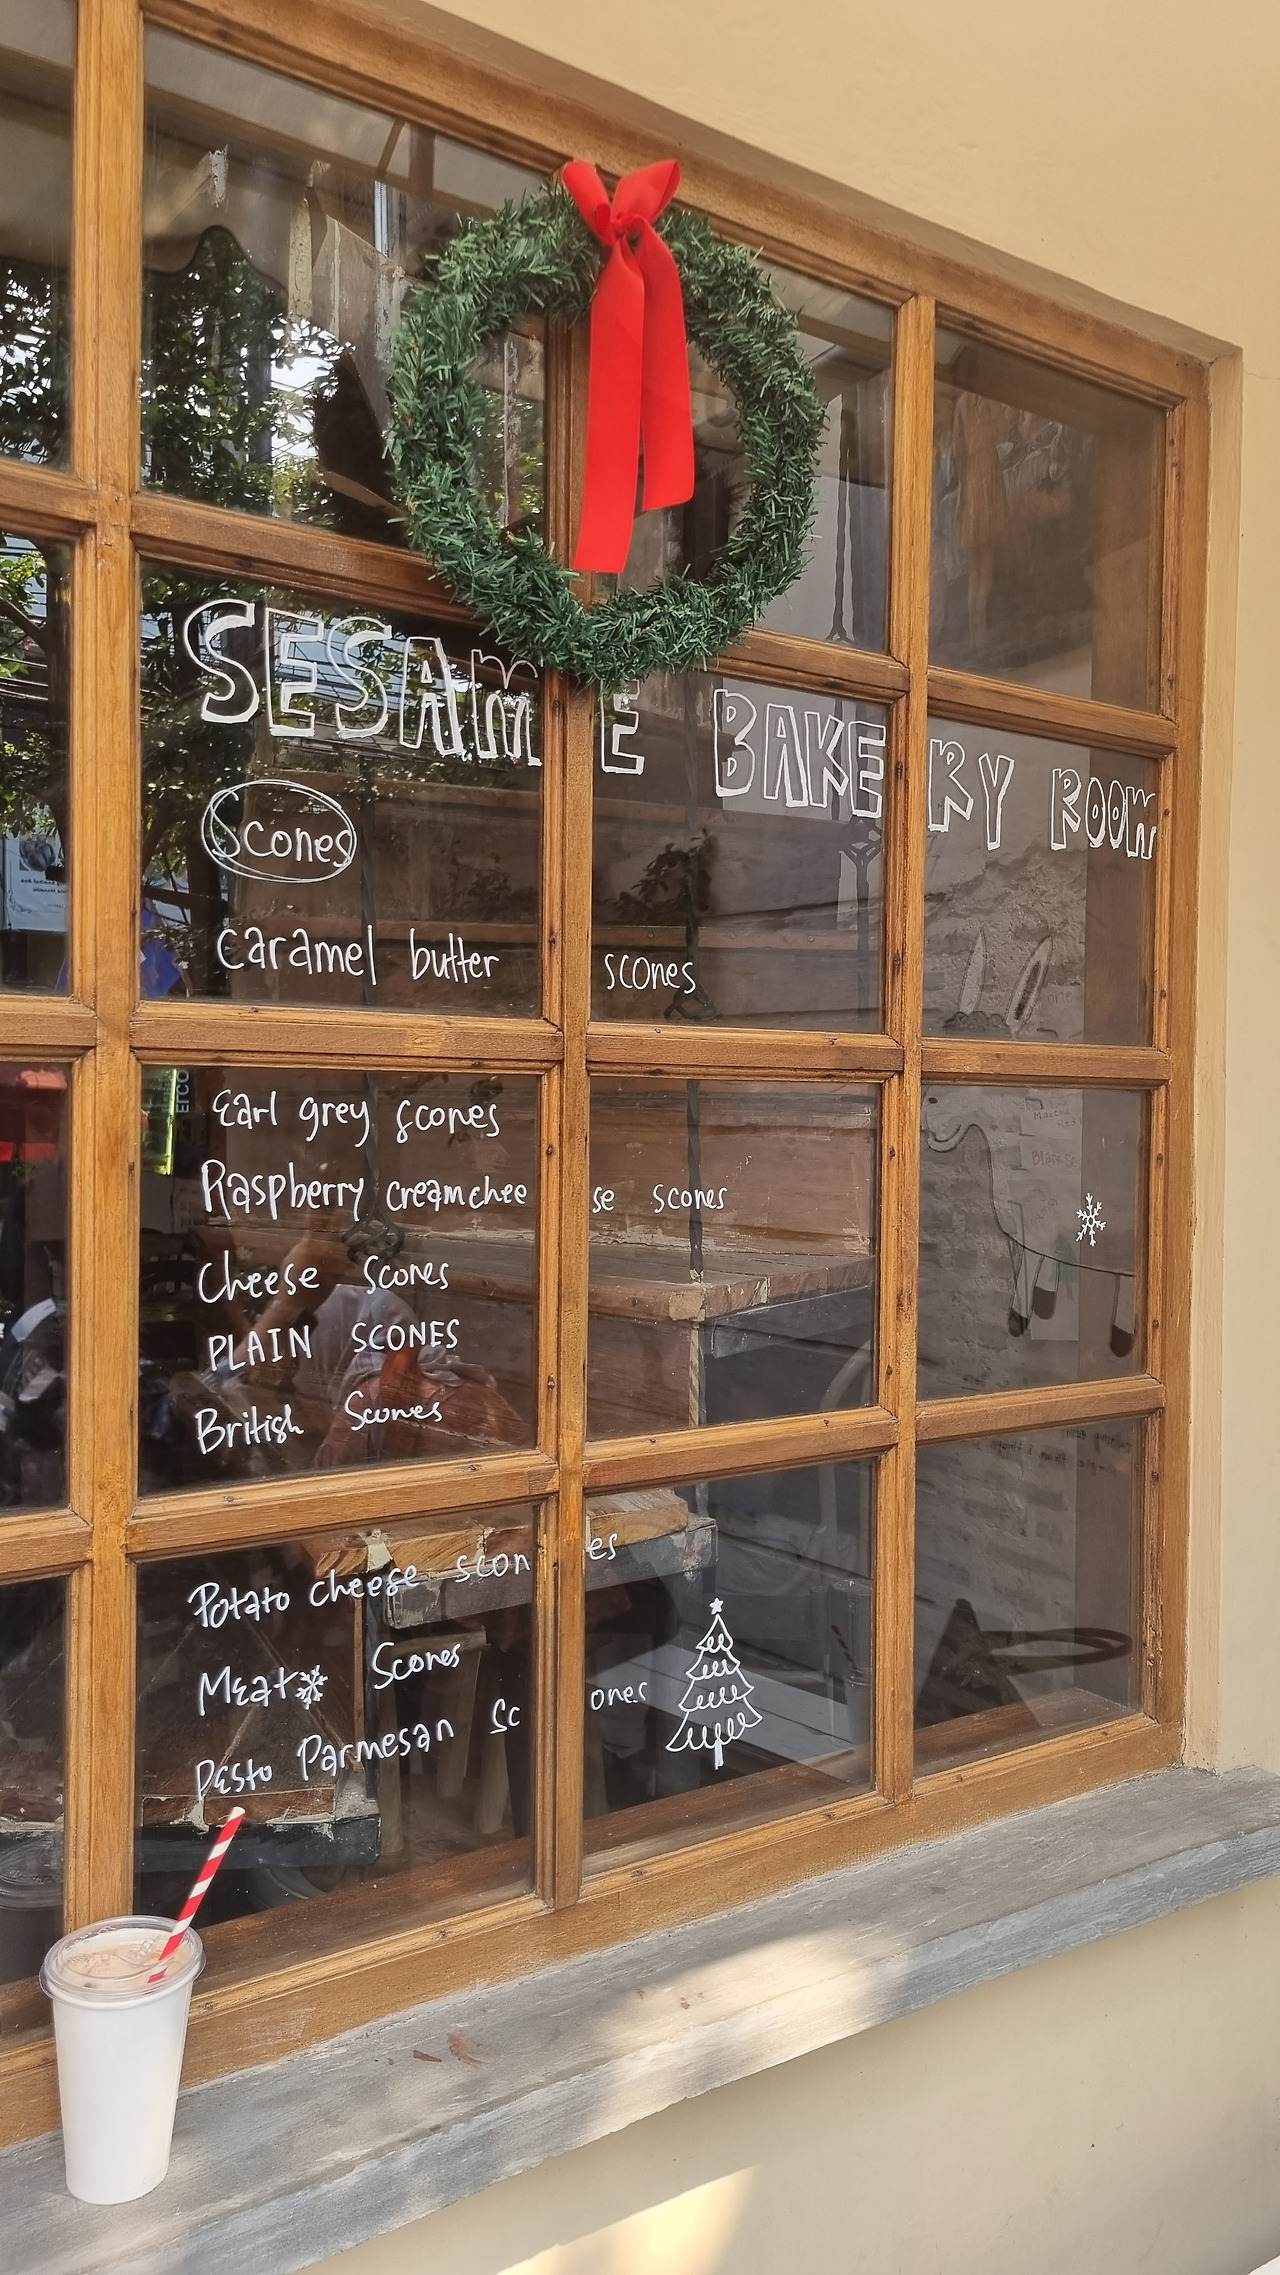 SESAME BAKERY ROOM
Scones
caramel butter scones
Earl grey scones
Raspberry creamcheese scones
Cheese Scones
PLAIN SCONES
British Scones
Potato cheese scones
Meat Scones
Pesto Parmesan Scones